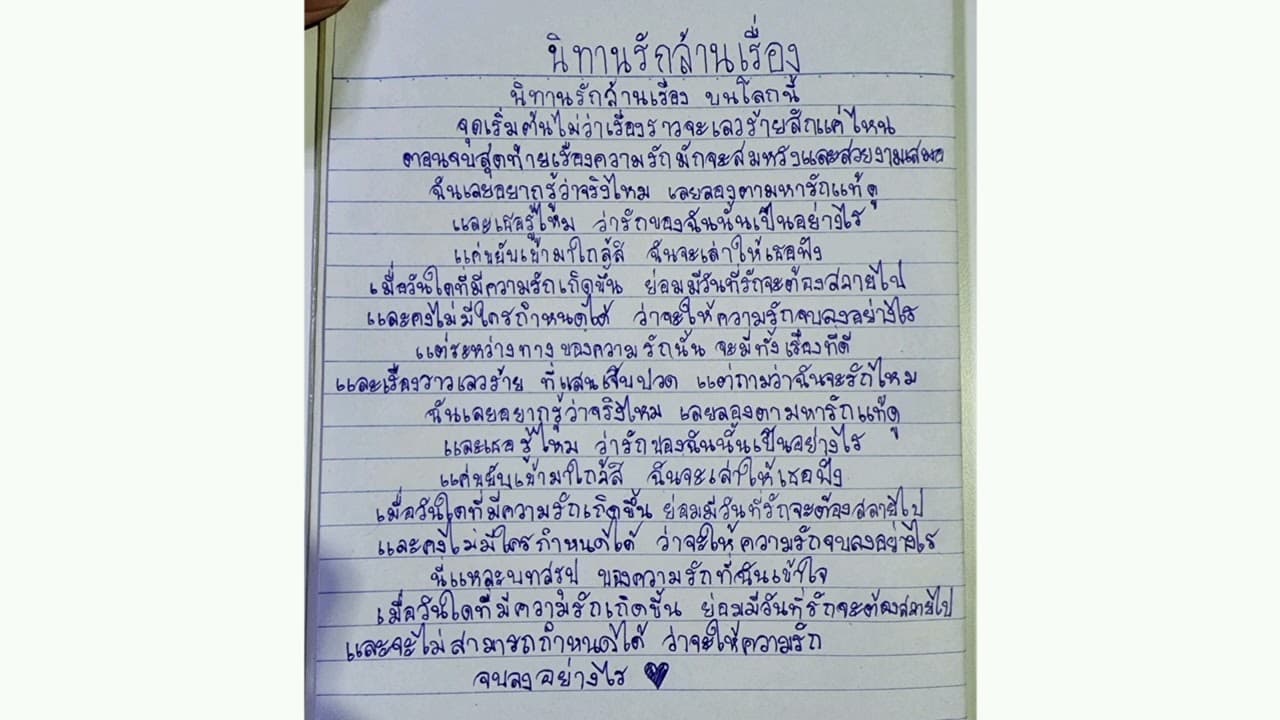 นิทานรักล้านเรื่อง
นิทานรักล้านเรื่อง บนโลกนี้
จุดเริ่มต้นไม่ว่าเรื่องราวจะเลวร้ายสักแค่ไหน
ตอนจบสุดท้ายเรื่องความรักมักจะสมหวังและสวยงามเสมอ
ฉันเลยอยากรู้ว่าจริงไหม เลยลองตามหารักแท้ดู
และเธอรู้ไหม ว่ารักของฉันนั้นเป็นอย่างไร
แค่ขยับเข้ามาใกล้สิ ฉันจะเล่าให้เธอฟัง
เมื่อวันใดที่มีความรักเกิดขึ้น ย่อมมีวันที่รักจะต้องสลายไป
และคงไม่มีใครกำหนดได้ ว่าจะให้ความรักจบลงอย่างไร
แต่ระหว่างทางของความรักนั้น จะมีทั้งเรื่องที่ดี
และเรื่องราวเลวร้าย ที่แสนเจ็บปวด แต่ถามว่าฉันจะรักไหม
ฉันเลยอยากรู้ว่าจริงไหม เลยลองตามหารักแท้ดู
และเธอรู้ไหม ว่ารักของฉันนั้นเป็นอย่างไร
แค่ขยับเข้ามาใกล้สิ ฉันจะเล่าให้เธอฟัง
เมื่อวันใดที่มีความรักเกิดขึ้น ย่อมมีวันที่รักจะต้องสลายไป
และคงไม่มีใครกำหนดได้ ว่าจะให้ความรักจบลงอย่างไร
นี่แหละบทสรุป ของความรักที่ฉันเข้าใจ
เมื่อวันใดที่มีความรักเกิดขึ้น ย่อมมีวันที่รักจะต้องสลายไป
และจะไม่สามารถกำหนดได้ ว่าจะให้ความรัก
จบลงอย่างไร ♥